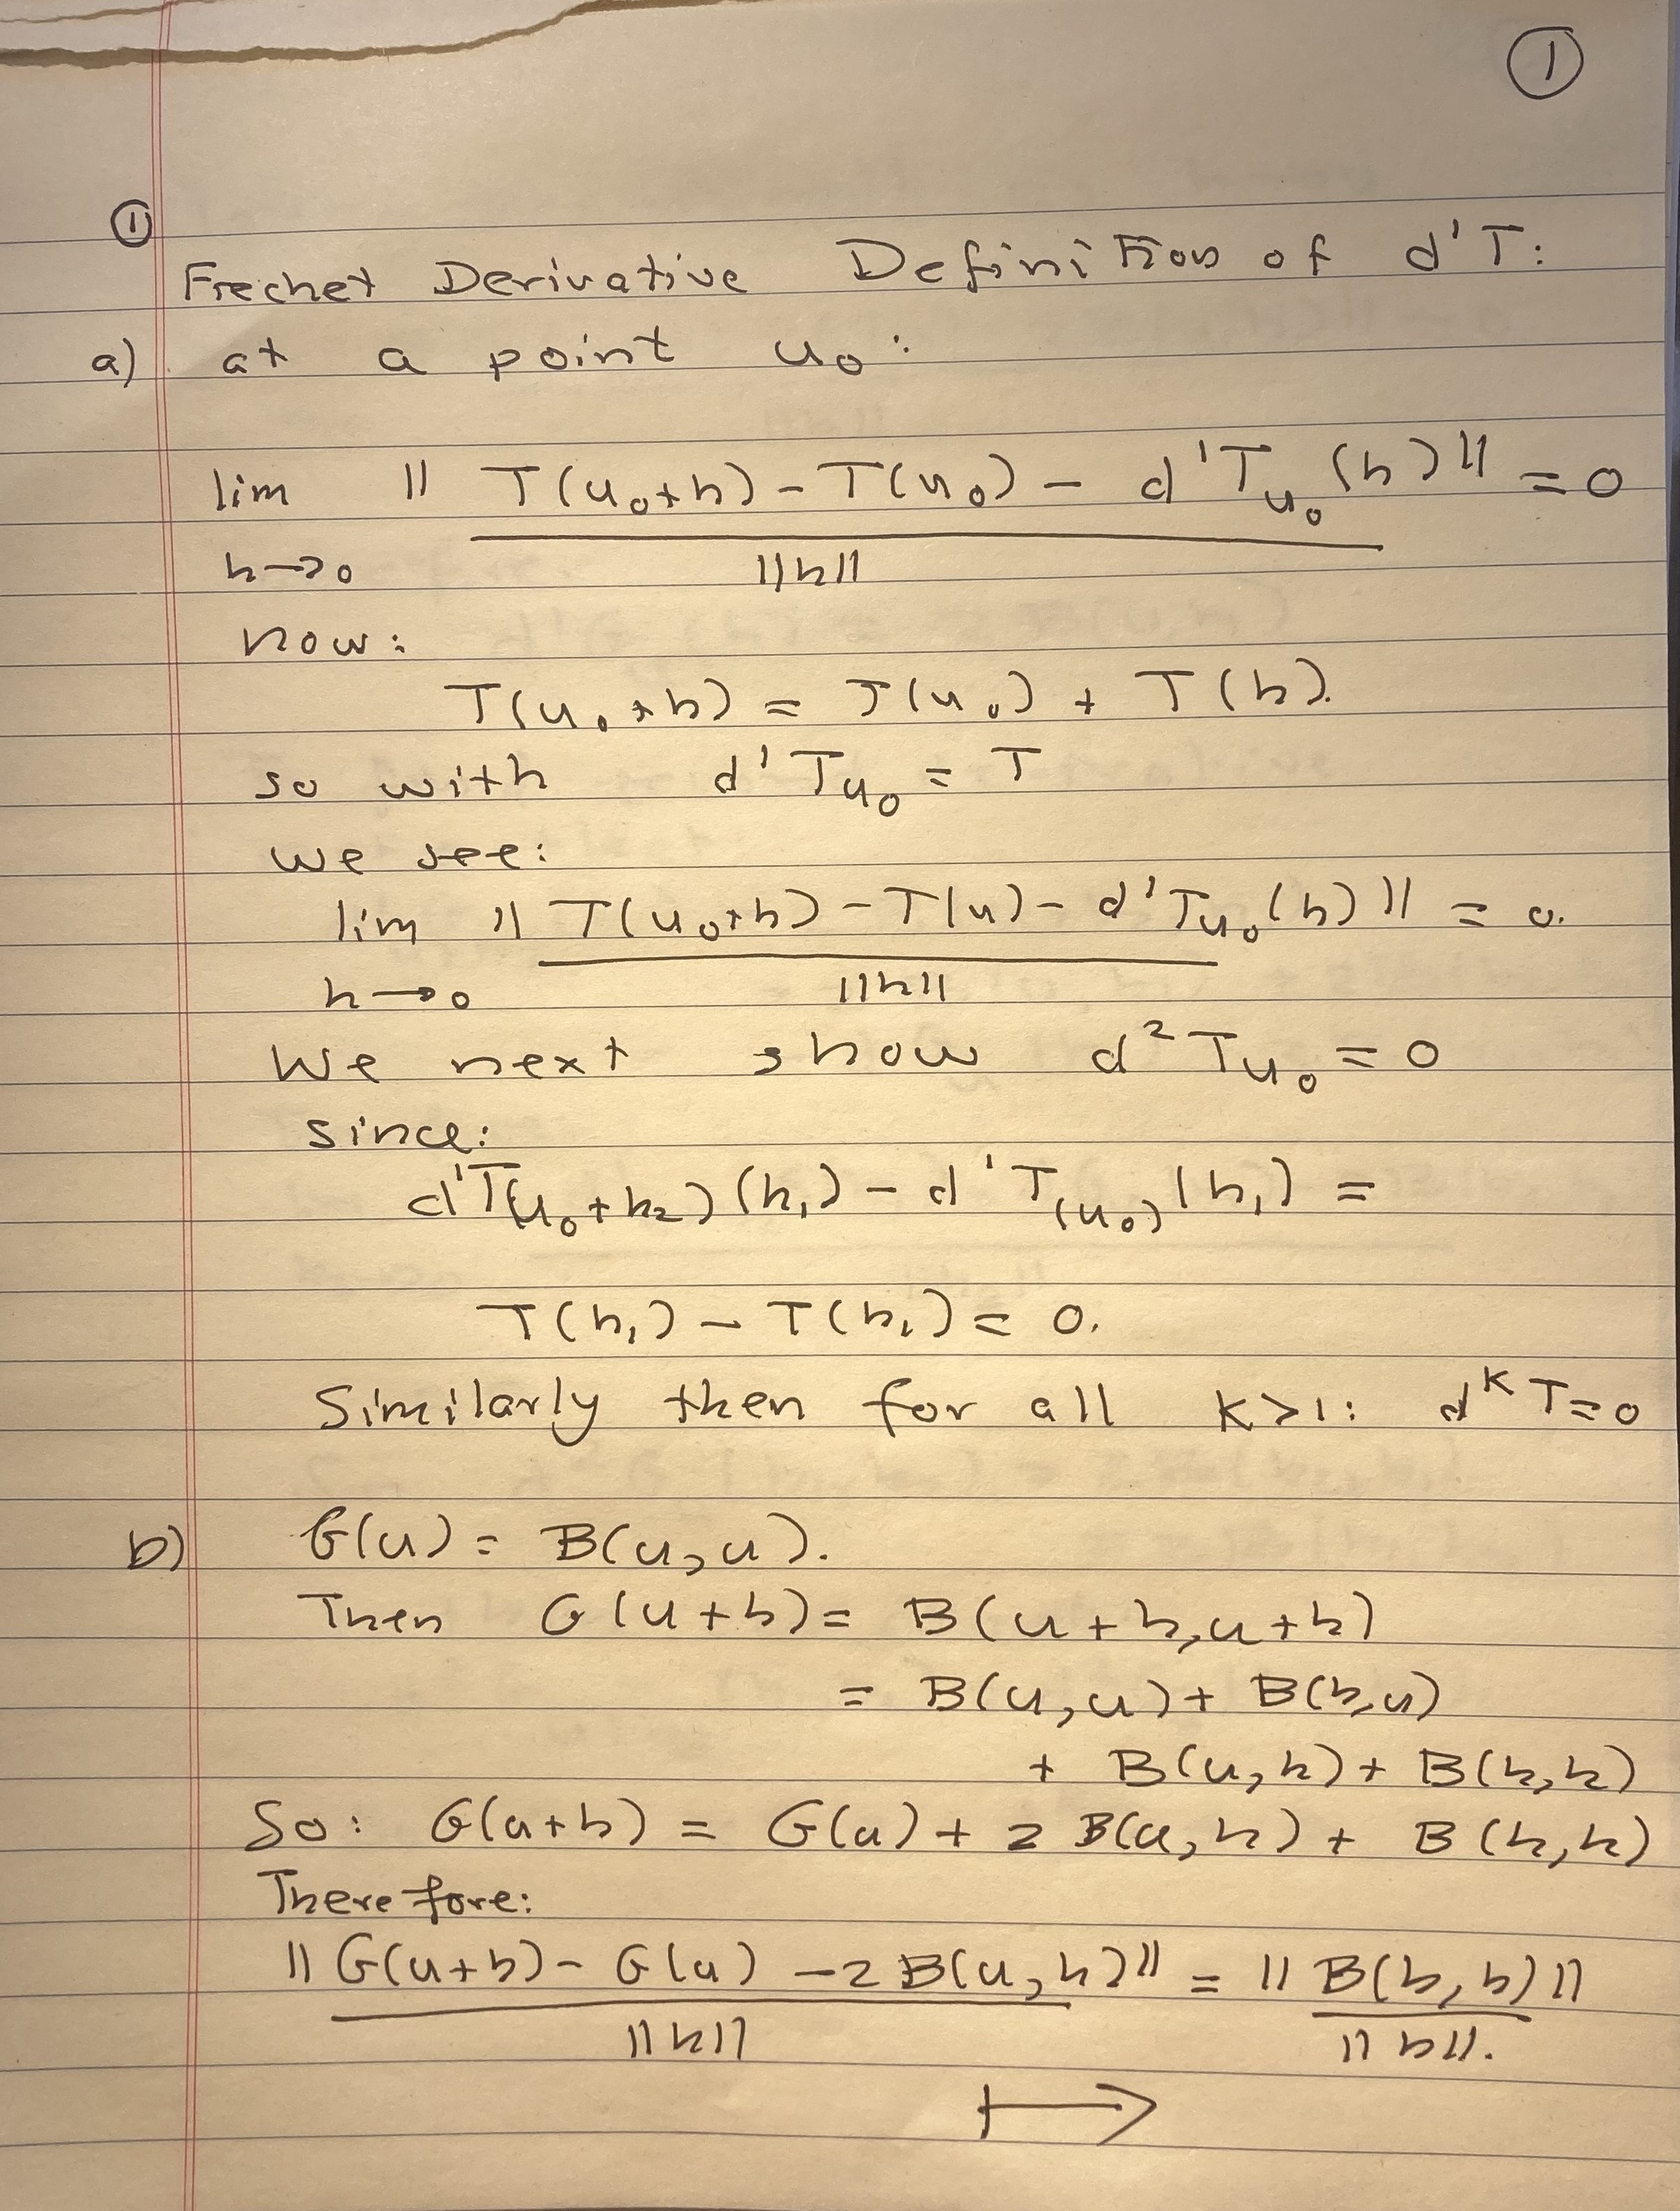 ①
①
Frechet Derivative Definition of d'T:
a) at a point u₀:
lim || T(u₀+h) - T(u₀) - d'T_u₀(h) || = 0
h→0 ||h||
now:
T(u₀+h) = T(u₀) + T(h).
so with d'T_u₀ = T
we see:
lim || T(u₀+h) - T(u) - d'T_u₀(h) || = 0.
h→0 ||h||
We next show d²T_u₀ = 0
since:
d'T(u₀+h₂)(h₁) - d'T(u₀)(h₁) =
T(h₁) - T(h₁) = 0.
Similarly then for all K>1: d^K T=0
b) G(u) = B(u,u).
Then G(u+h) = B(u+h,u+h)
= B(u,u) + B(h,u)
+ B(u,h) + B(h,h)
So: G(u+h) = G(u) + 2 B(u,h) + B(h,h)
Therefore:
|| G(u+h) - G(u) - 2B(u,h) || = || B(h,h) ||
||h|| ||h||.
↦